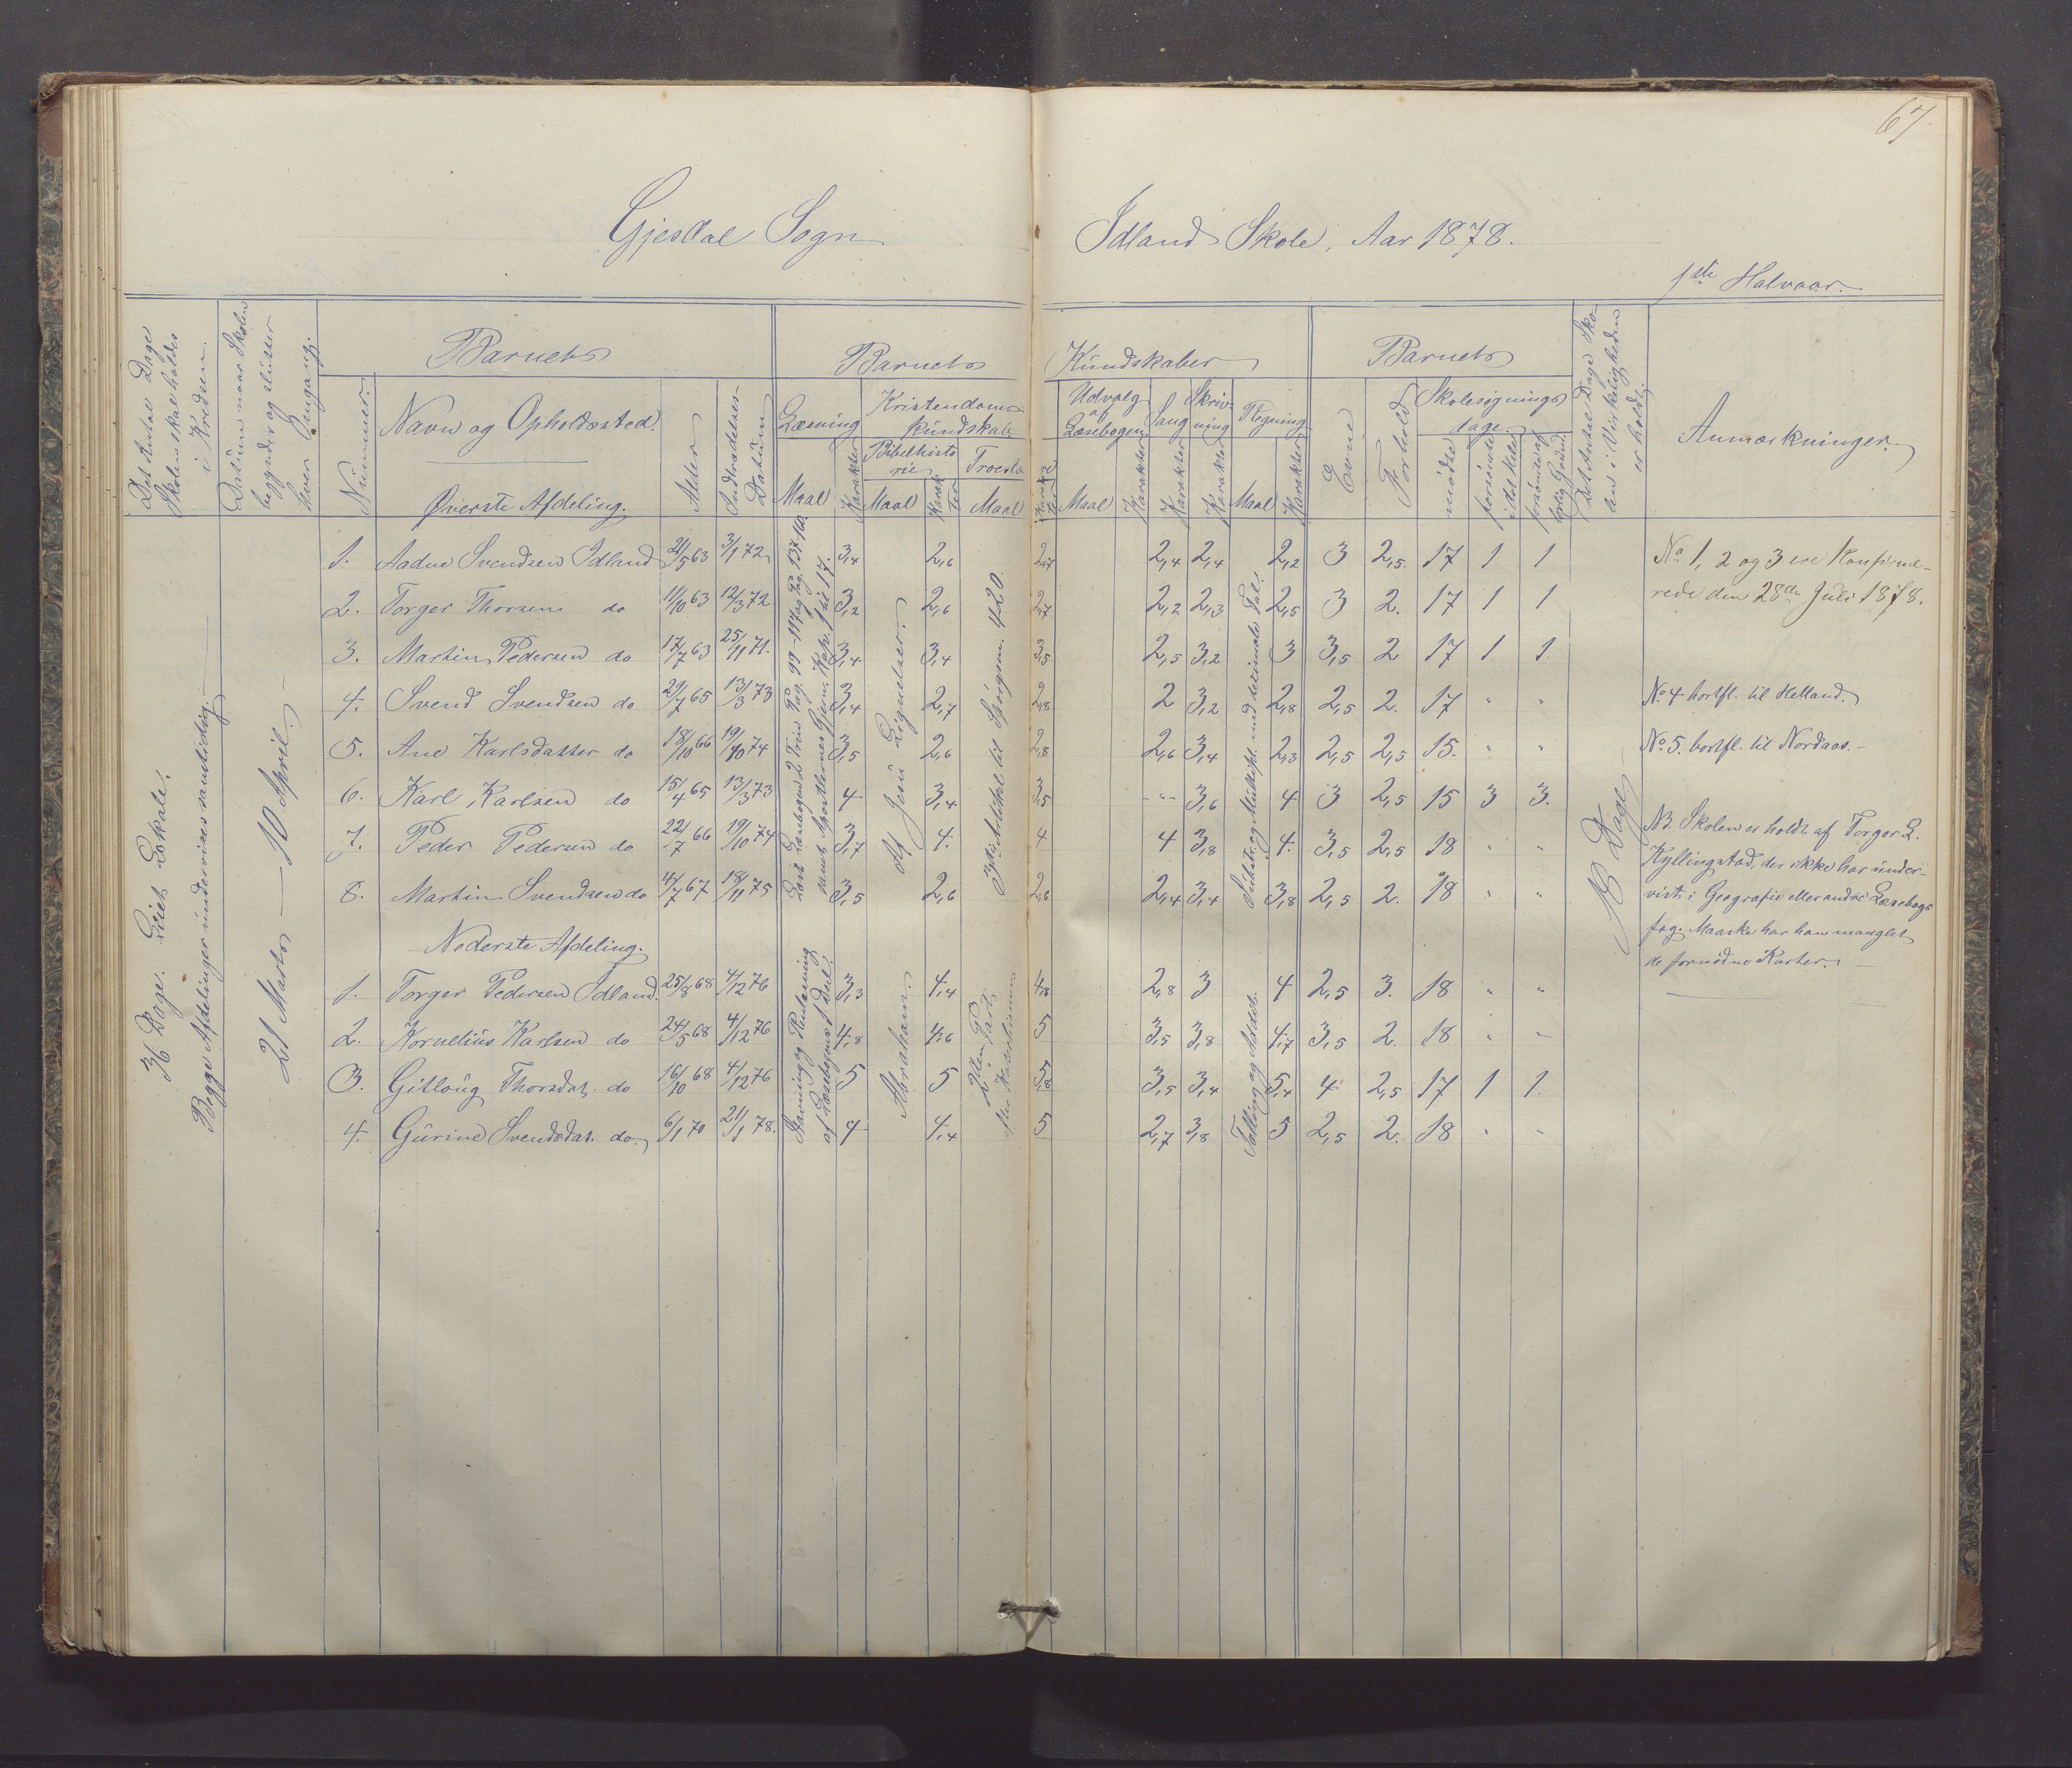 67
Gjesdal Sogn
Idland Skole, Aar 1878.
1ste Halvaar.
Det Antal Dage
Skolen skal holdes
i Kredsen.
Datum naar Skolen
begynder og slutter
hver Omgang.
Barnets
Barnets
Kundskaber
Barnets
Det Antal Dage Sko-
len i Virkeligheden
er holdt.
Anmærkninger.
Nummer.
Navn og Opholdssted.
Øverste Afdeling.
Alder
Indtrædelses-
Datum
Læsning
Maal
Karakter
Kristendoms-
kundskab.
Bibelhisto
rie
Maal
Karak
ter
Troeslæ
re
Maal
Karak
ter
Udvalg
af
Læsebogen
Maal
Karakter
Sang
Karakter
Skriv-
ning
Karakter
Regning
Maal
Karakter
Evne
Forhold
Skolesøgnings
dage.
mødte
forsømte
i det Hele
forsømte af
lovlig Grund.
36 Dage. Leiet Lokale.
Begge Afdelinger undervises samtidig.
21 Marts — 10 April.
Læst Læsebogens 2 Trin Pag. 99-117 og Pag. 137-140.
samt Apostlernes Gjern. Kap. 1 til 17.
Af Jesu Lignelser.
3die Artikel til Spørgsm. 420.
Subtr. og Multipl. med decimale Tal.
18 Dage
1. Aadne Svendsen Idland 21/5 63 3/1 72 3,4 2,6 2,7 2,4 2,4 2,2 3 2,5 17 1 1
2. Torger Thorsen do 11/10 63 12/3 72 3,2 2,6 2,7 2,2 2,3 2,5 3 2. 17 1 1
3. Martin Pedersen do 17/7 63 25/11 71. 3,4 3,4 3,5 2,5 3,2 3 3,5 2 17 1 1
4. Svend Svendsen do 29/7 65 13/3 73 3,4 2,7 2,8 2 3,2 2,8 2,5 2. 17 " "
5. Ane Karlsdatter do 18/10 66 19/10 74 3,5 2,6 2,8 2,6 3,4 2,3 2,5 2,5 15. " "
6. Karl Karlsen do 15/4 65 13/3 73 4 3,4 3,5 - " - 3,6 4 3 2,5 15 3 3.
7. Peder Pedersen do 22/7 66 19/10 74 3,7 4. 4 4 3,8 4. 3,5 2,5 18 " "
8. Martin Svendsen do 4/7 67 18/11 75 3,5 2,6 2,6 2,4 3,4 3,8 2,5 2. 18 " "
Nederste Afdeling.
Stavning og Penlæsning
af Læsebogens 1 Del.
Abraham.
2den Part
efter Katekismen
Tælling og Addit.
1. Torger Pedersen Idland. 25/8 68 4/12 76 3,3 4,4 4,8 2,8 3 4 2,5 3. 18 " "
2. Kornelius Karlsen do 24/5 68 4/12 76 4,8 4,6 5 3,5 3,8 4,7 3,5 2. 18 " "
3. Gitlaug Thorsdat. do 16/10 68 4/12 76 5 5 5,8 3,5 3,4 5,4 4 2,5 17 1 1.
4. Gurine Svendsdat. do 6/1 70 21/1 78. 4 4,4 5 2,7 3,8 5 2,5 2. 18 " "
No 1, 2 og 3 ere Konfirme-
rede den 28de Juli 1878.
No 4 bortfl. til Helland.
No 5. bortfl. til Nordaas. -
NB. Skolen er holdt af Torger L.
Kyllingstad, der ikke har under-
vist i Geografi eller andre Læsebogs
fag. Maaske har han manglet
de fornødne Karter. -